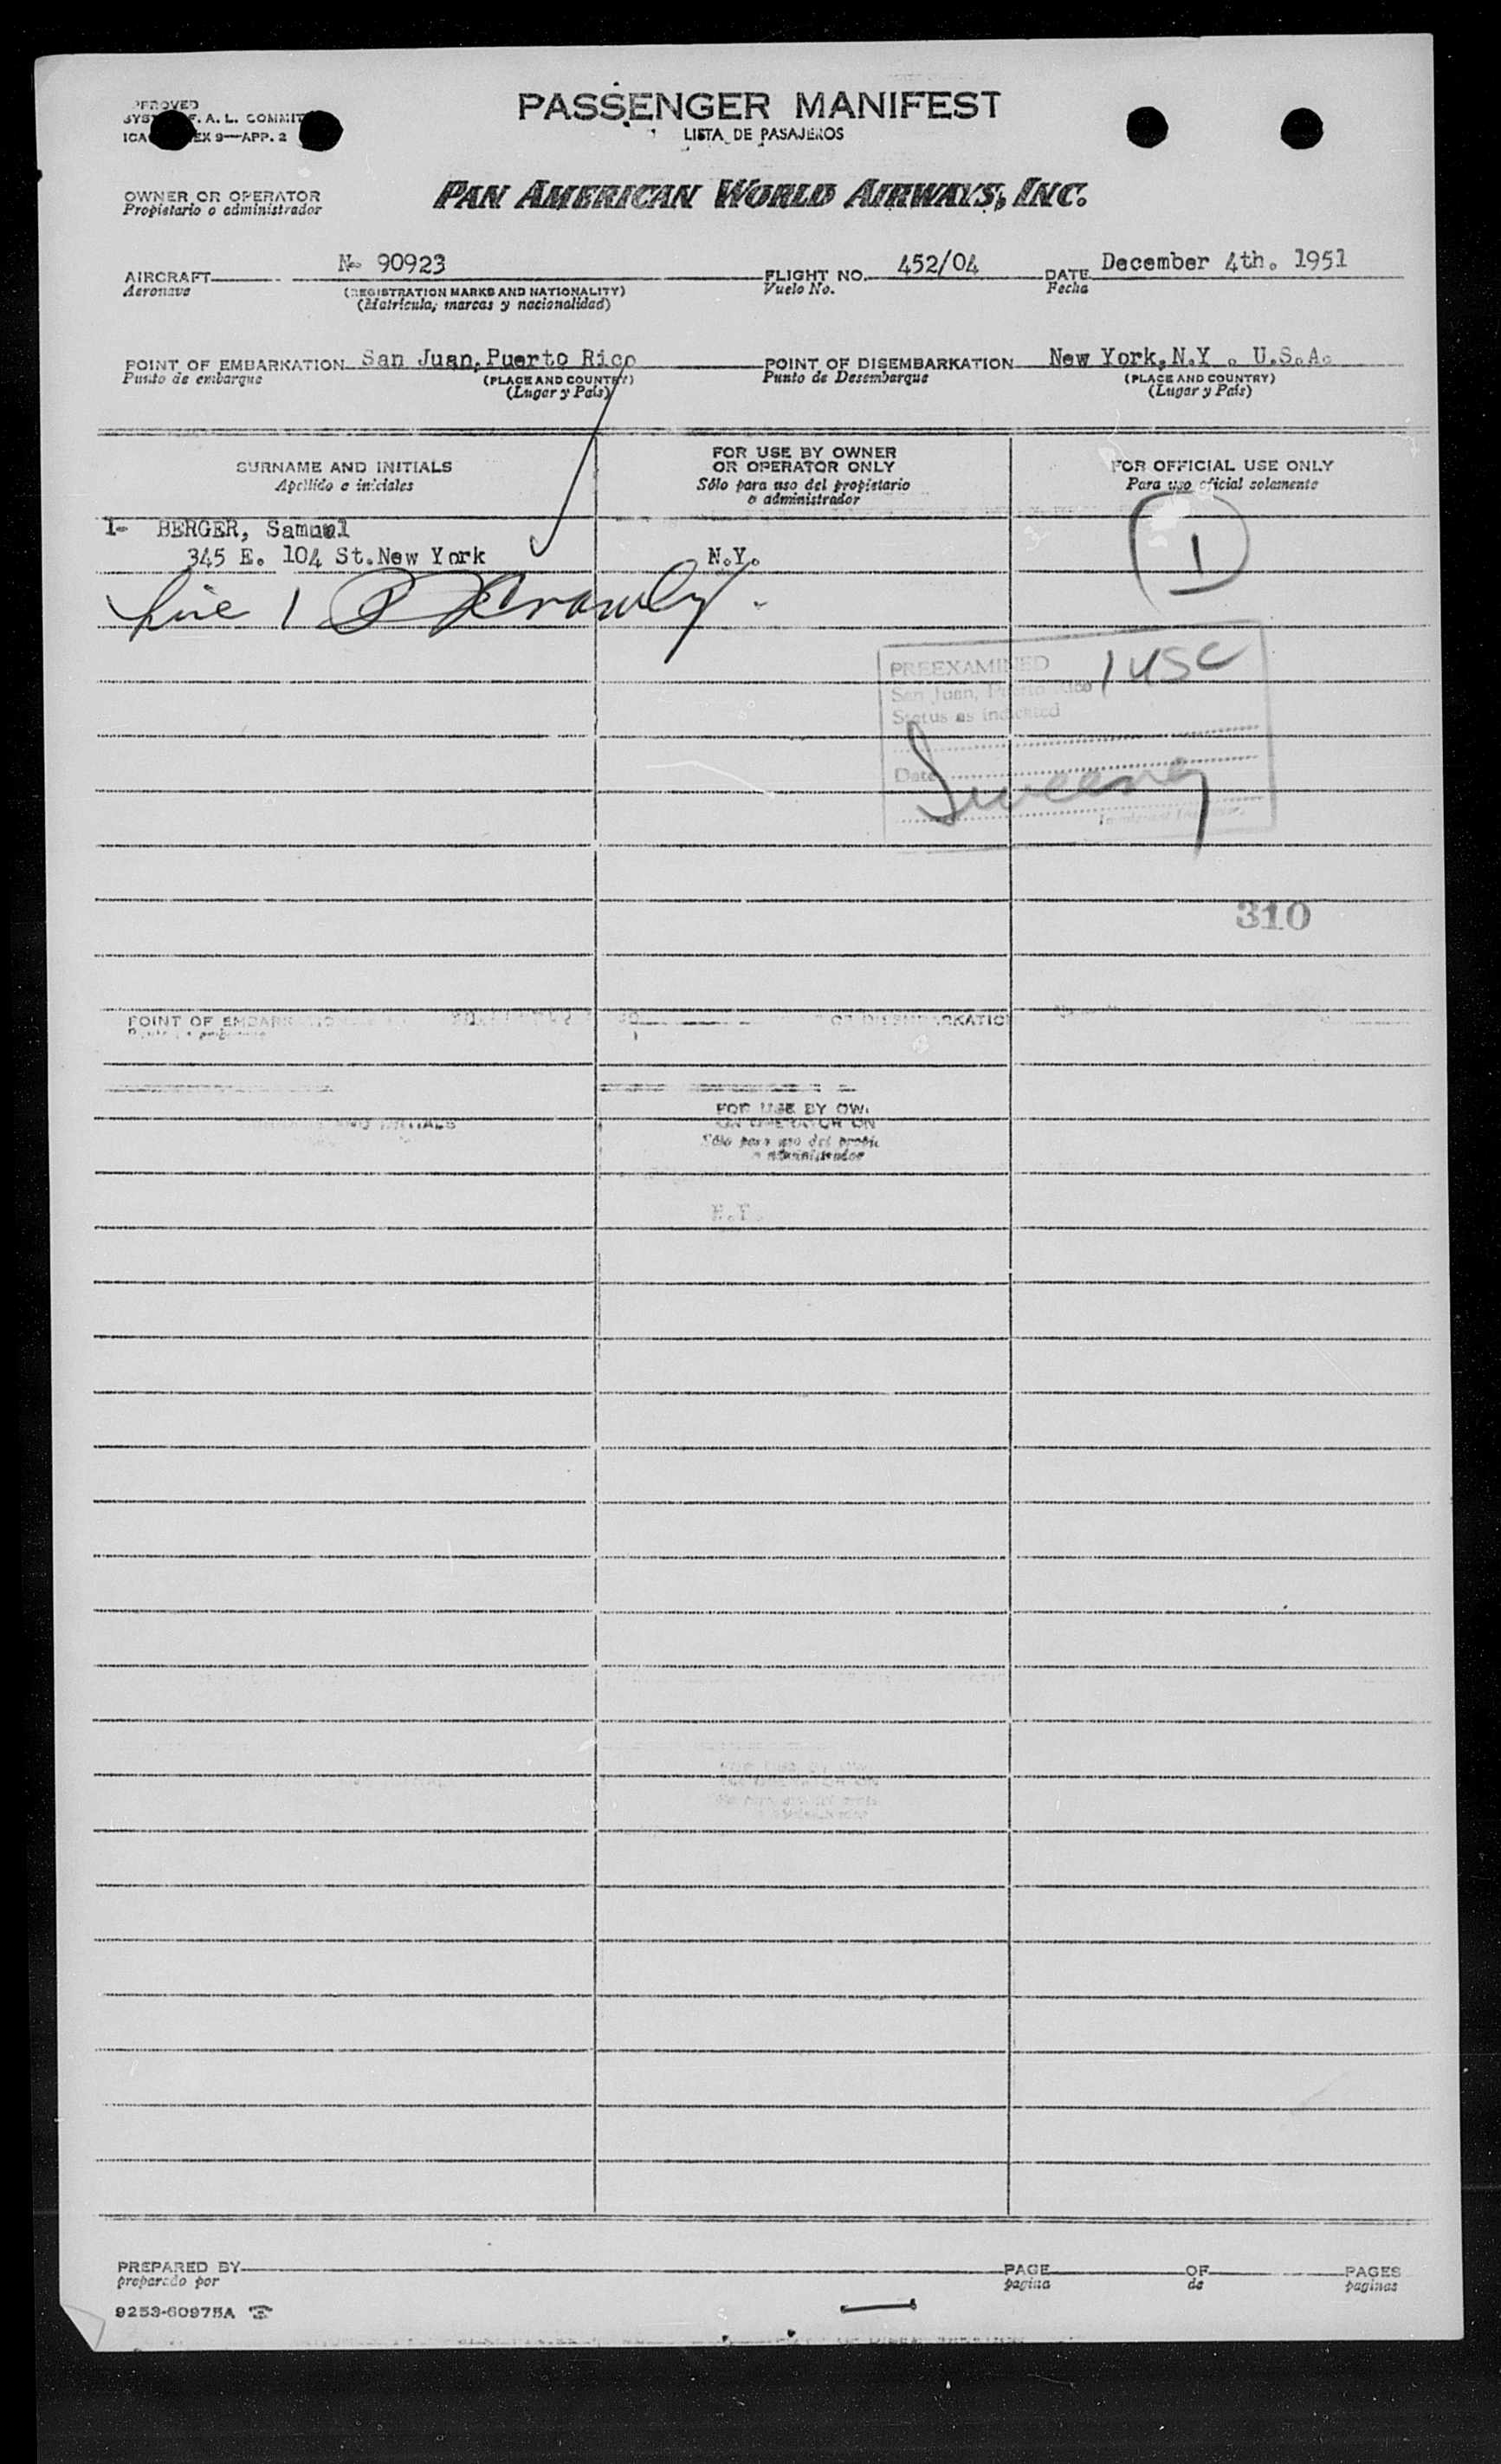 PASSENGER MANIFEST
LISTA DE PASAJEROS
F. A. L.
9—APP. 2
OWNER OR OPERATOR
Propietario o administrador
PAN AMERICAN WORLD AIRWAYS, INC.
AIRCRAFT N- 90923 FLIGHT NO. 452/04 DATE December 4th. 1951
Aeronave (REGISTRATION MARKS AND NATIONALITY) Vuelo No. Fecha
(Matrícula, marcas y nacionalidad)
POINT OF EMBARKATION San Juan, Puerto Rico POINT OF DISEMBARKATION New York, N.Y . U.S.A.
Punto de embarque (PLACE AND COUNTRY) Punto de Desembarque (PLACE AND COUNTRY)
(Lugar y País) (Lugar y País)
SURNAME AND INITIALS
Apellido e iniciales
FOR USE BY OWNER
OR OPERATOR ONLY
Sólo para uso del propietario
o administrador
FOR OFFICIAL USE ONLY
Para uso oficial solamente
1- BERGER, Samuel
345 E. 104 St.New York N.Y.
1
line 1
PREEXAMINED 1 USC
San Juan, Puerto Rico
Status as indicated
Date
Sweeney
310
POINT OF
FOR USE BY
Sólo para uso del
N.Y.
PREPARED BY PAGE OF PAGES
preparado por pagina de paginas
9253-60975A